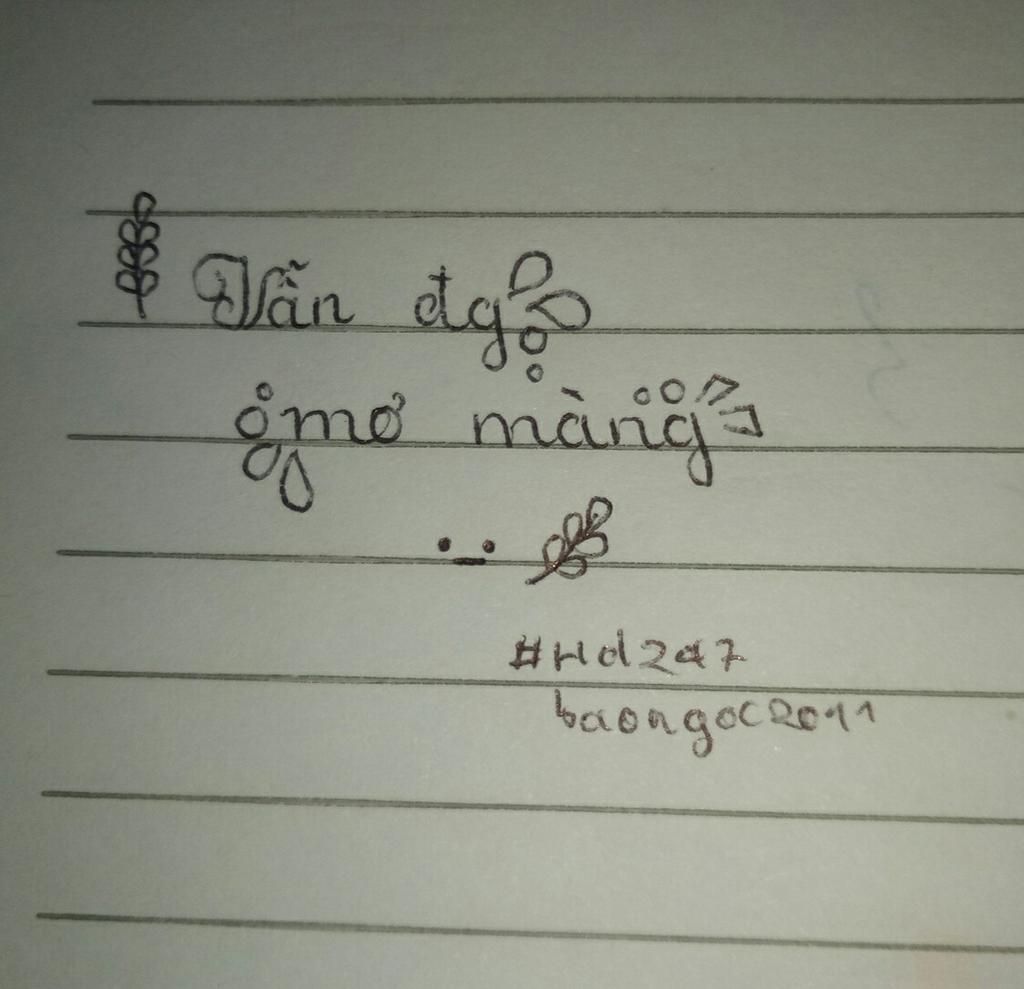 Vẫn đg
mơ màng
#Hd247
baongoc2011